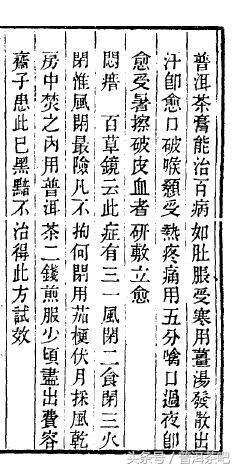 普洱茶膏能治百病如肚脹受寒用薑湯發散出
汁卽愈口破喉顙受熱疼痛用五分噙口過夜卽
愈受暑擦破皮血者研敷立愈
悶瘄 百草鏡云此症有三一風閉二食閉三火
閉惟風閉最險凡不拘何閉用茄梗伏月採風乾
房中焚之內用普洱茶二錢煎服少頃盡出費容
齋子患此已黑黯不治得此方試效
头条号/普洱茶吧